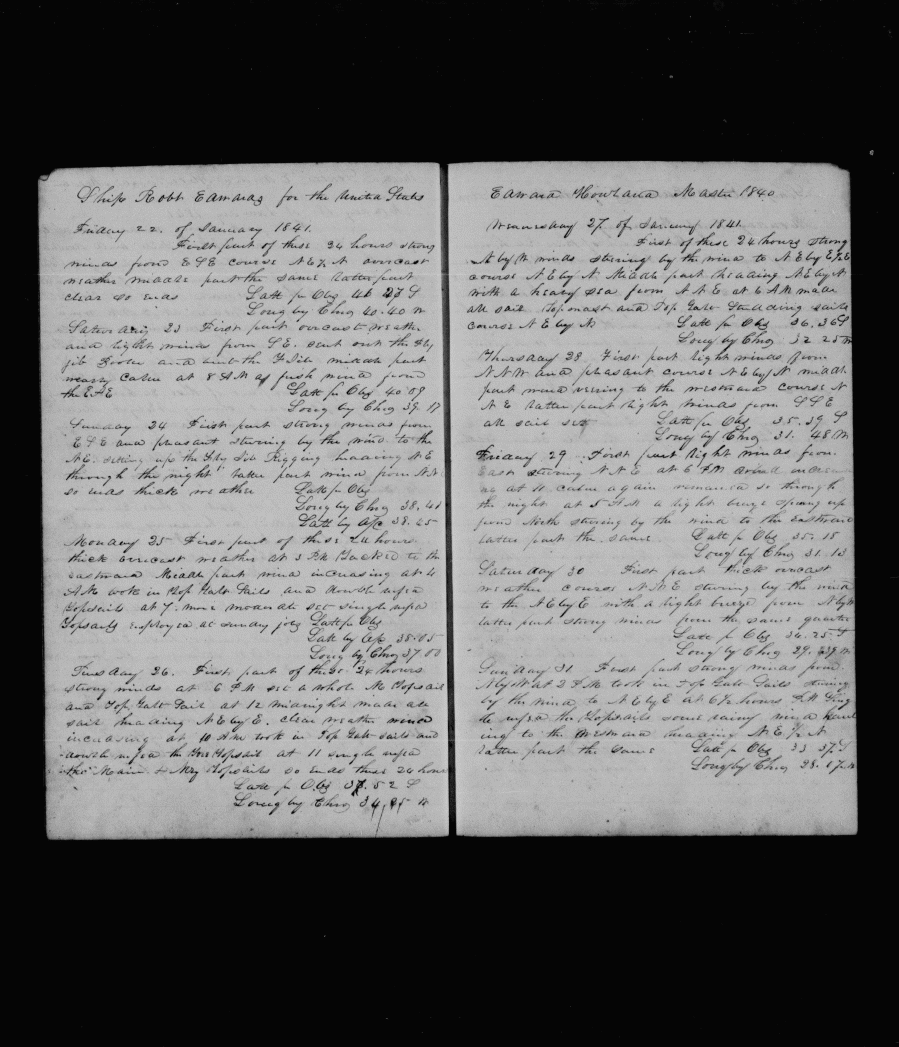 Ship Robt Edwards for the United States
Friday 22. of January 1841.
First part of these 24 hours strong
winds from ESE course NE½N overcast
weather middle part the same latter part
clear so ends Latt pr Obs 41 27 S
Long by Chro 40.40 W
Saturday 23 First part overcast weather
and light winds from SE. sent out the Fly
jib Boom and bent the F Jib middle part
nearly calm at 8 AM a fresh wind from
the ESE Latt pr Obs 40 09
Long by Chro 39. 17
Sunday 24 First part strong winds from
ESE and pleasant steering by the wind to the
NE. setting up the Fly Jib Rigging heading NE
through the night latter part wind from NN
so ends thick weather Latt pr Obs
Long by Chro 38.41
Latt by a/c 39.25
Monday 25 First part of these 24 hours
thick overcast weather at 3 PM Tacked to the
eastward Middle part wind increasing at 4
AM took in Top Galt Sails and double reefed
Topsails at 7. more moderate set single reefed
Topsails employed at sundry jobs Latt pr Obs
Latt by a/c 38.05
Long by Chro 37.00
Tuesday 26. First part of these 24 hours
strong winds at 6 PM set a whole M Topsail
and Top Galt Sail at 12 midnight made all
sail heading NE by E. clear weather wind
increasing at 10 AM took in Top Galt sails and
double reefed the Fore Topsail at 11 single reefed
the Main & Miz Topsails so ends these 24 hours
Latt pr Obs 37.52 S
Long by Chro 34, 25 W
Edward Howland Master 1840
Wednesday 27 of January 1841
First of these 24 hours strong
N by W winds steering by the wind to NE by E½E
course NE by N. Middle part heading NE by N
with a heavy sea from NNE at 6 AM made
all sail Topmast and Top Galt Studding sails
course NE by N Latt pr Obs 36.36 S
Long by Chro 32 25 W
Thursday 28. First part light winds from
NNW and pleasant course NE by N middle
part wind veering to the westward course N
NE latter part light winds from SSE
all sail set Latt pr Obs 35.39 S
Long by Chro 31. 48 W
Friday 29. First part light winds from
East steering NNE at 6 PM wind
at 11 calm again remained so through
the night at 5 AM a light breeze sprang up
from North steering by the wind to the Eastward
latter part the same Latt pr Obs 35.15
Long by Chro 31.13
Saturday 30 First part thick overcast
weather course NNE steering by the wind
to the NE by E with a light breeze from N by W
latter part strong winds from the same quarter
Latt pr Obs 34.25 S
Long by Chro 29. W
Sunday 31 First part strong winds from
N by W at 2 PM took in Top Galt Sails steering
by the wind to NE by E at 6½ hours PM Sing
le reefed the Topsails some rainy wind haul
ing to the Westward heading NE½N
latter part the same Latt pr Obs 33 37 S
Long by Chro 28. 17. W